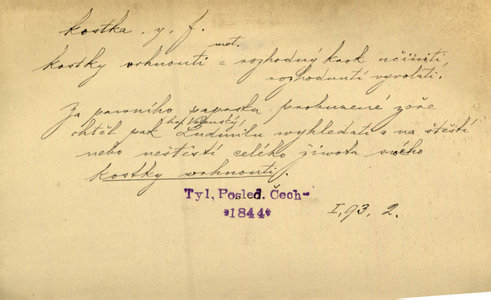 kostka, y, f.
met.
kostky vrhnouti = rozhodný krok učiniti,
rozhodnutí vyvolati.
Za prvního paprsku probuzené zoře
chtěl pak Ludmilu vyhledati a na štěstí
nebo neštěstí celého života svého
kostky vrhnouti.
Tyl, Posled. Čech-
*1844*
I, 93, 2.